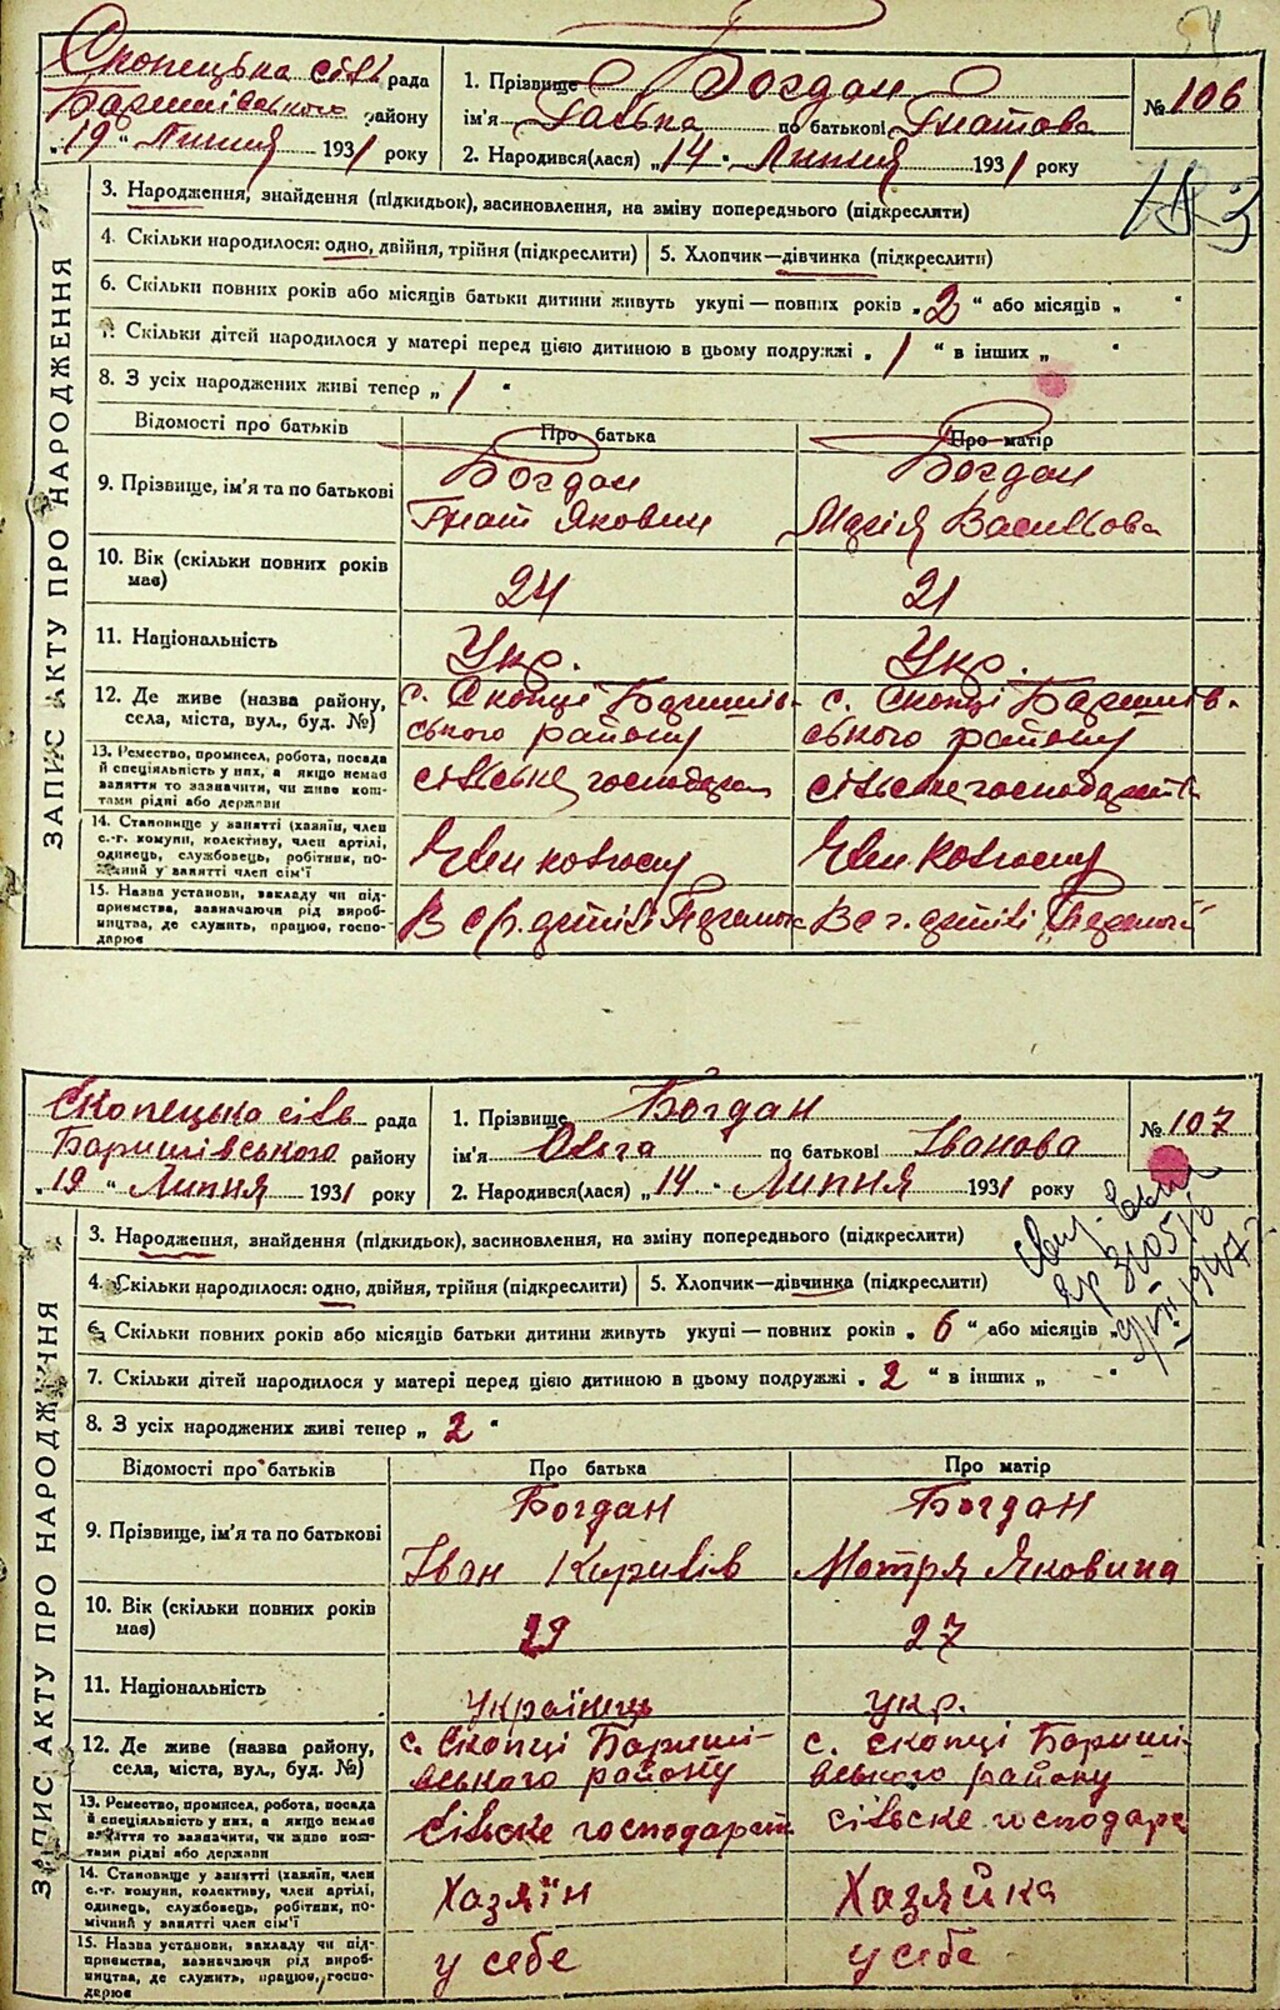 54
Скопецька сіль рада
Баришівського району
„19“ Липня 1931 року
1. Прізвище Богдан
ім'я Галька по батькові Гнатова
2. Народився(лася) „14“ Липня 1931 року
№ 106
3. Народження, знайдення (підкидьок), засиновлення, на зміну попереднього (підкреслити)
4. Скільки народилося: одно, двійня, трійня (підкреслити) 5. Хлопчик—дівчинка (підкреслити)
6. Скільки повних років або місяців батьки дитини живуть укупі — повних років „2“ або місяців „ “
7. Скільки дітей народилося у матері перед цією дитиною в цьому подружжі „1“ в інших „ “
8. З усіх народжених живі тепер „1“
ЗАПИС АКТУ ПРО НАРОДЖЕННЯ
Відомості про батьків Про батька Про матір
9. Прізвище, ім'я та по батькові
Богдан
Гнат Якович
Богдан
Марія Васильова
10. Вік (скільки повних років має)
24
21
11. Національність
Укр.
Укр.
12. Де живе (назва району, села, міста, вул., буд. №)
с. Скопці Баришів-
ського району
с. Скопці Баришів-
ського району
13. Ремество, промисел, робота, посада
й спеціяльність у них, а якщо немає
заняття то зазначити, чи живе кош-
тами рідні або держави
сільське господар
сільське господарств
14. Становище у занятті (хазяїн, член
с.-г. комуни, колективу, член артілі,
одинець, службовець, робітник, по-
мічний у занятті член сім'ї
Член колгоспу
Член колгоспу
15. Назва установи, закладу чи під-
приємства, зазначаючи рід вироб-
ництва, де служить, працює, госпо-
дарює
В с.г. артілі
В с.г. артілі
Скопецька сіль рада
Баришівського району
„19“ Липня 1931 року
1. Прізвище Богдан
ім'я Ольга по батькові Іванова
2. Народився(лася) „14“ Липня 1931 року
№ 107
3. Народження, знайдення (підкидьок), засиновлення, на зміну попереднього (підкреслити)
4. Скільки народилося: одно, двійня, трійня (підкреслити) 5. Хлопчик—дівчинка (підкреслити)
6. Скільки повних років або місяців батьки дитини живуть укупі — повних років „6“ або місяців „
7. Скільки дітей народилося у матері перед цією дитиною в цьому подружжі „2“ в інших „ “
8. З усіх народжених живі тепер „2“
ЗАПИС АКТУ ПРО НАРОДЖЕННЯ
Відомості про батьків Про батька Про матір
9. Прізвище, ім'я та по батькові
Богдан
Іван Кирилів
Богдан
Мотря Яковина
10. Вік (скільки повних років має)
29
27
11. Національність
Українець
укр.
12. Де живе (назва району, села, міста, вул., буд. №)
с. Скопці Бариші-
вського району
с. Скопці Бариші-
вського району
13. Ремество, промисел, робота, посада
й спеціяльність у них, а якщо немає
заняття то зазначити, чи живе кош-
тами рідні або держави
Сільске господарст
сільске господарс
14. Становище у занятті (хазяїн, член
с.-г. комуни, колективу, член артілі,
одинець, службовець, робітник, по-
мічний у занятті член сім'ї
Хазяїн
Хазяйка
15. Назва установи, закладу чи під-
приємства, зазначаючи рід вироб-
ництва, де служить, працює, госпо-
дарює
у себе
у себе